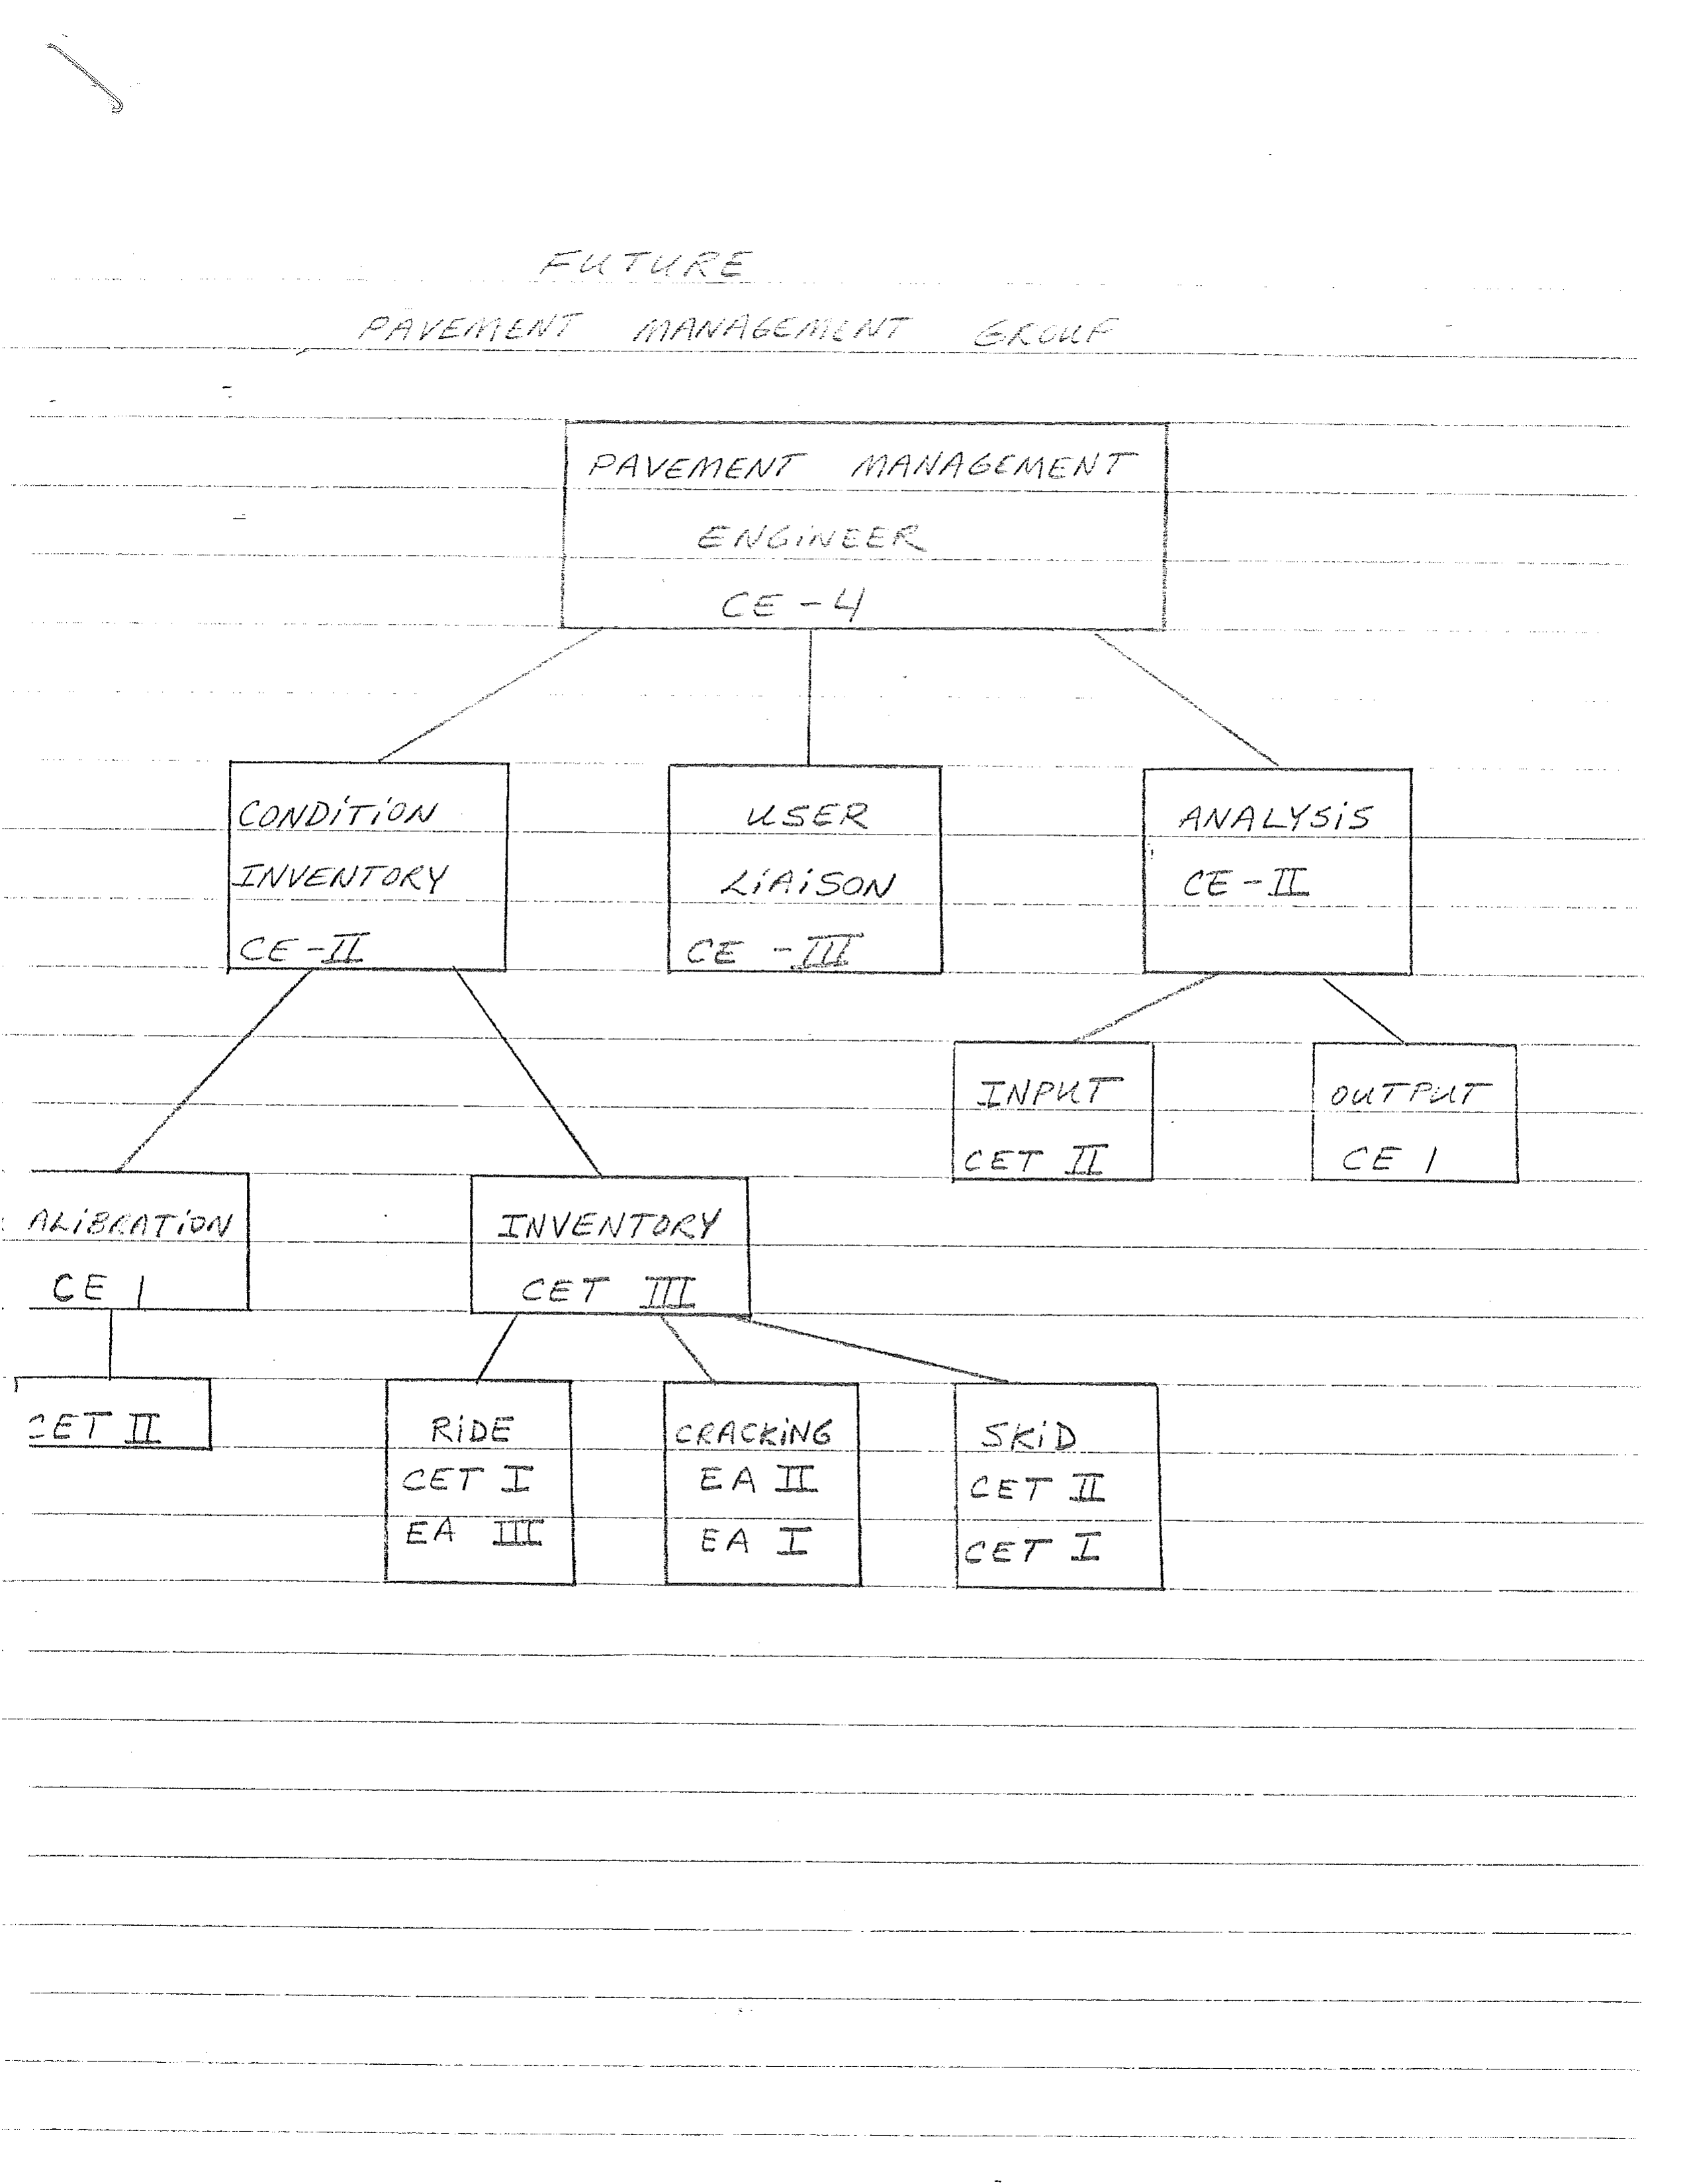 FUTURE
PAVEMENT MANAGEMENT GROUP
PAVEMENT MANAGEMENT
ENGINEER
CE-4
CONDITION
INVENTORY
CE-II
USER
LIAISON
CE-III
ANALYSIS
CE-II
INPUT
CET II
OUTPUT
CE 1
ALIBRATION
CE 1
INVENTORY
CET III
CET II
RIDE
CET I
EA III
CRACKING
EA II
EA I
SKID
CET II
CET I